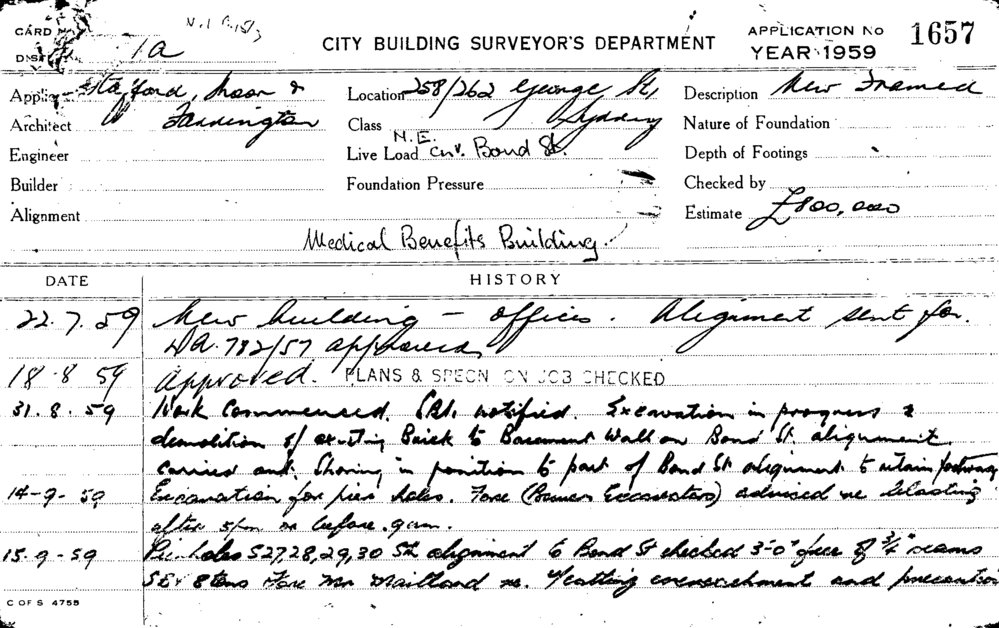 CARD
N.I.
DIST 1a
CITY BUILDING SURVEYOR'S DEPARTMENT
APPLICATION No 1657
YEAR 1959
Applic Stafford, Moor &
Location 258/262 George St,
Description New Framed
Architect Farrington
Class Sydney
Nature of Foundation
Engineer
Live Load N.E. Cnr. Bond St.
Depth of Footings
Builder
Foundation Pressure
Checked by
Alignment
Estimate £800,000
Medical Benefits Building
DATE
HISTORY
22.7.59 New building – offices. Alignment sent for.
DA. 782/57 approved
18.8 59 Approved. PLANS & SPECN ON JOB CHECKED
31.8.59 Work Commenced. notified. Excavation in progress &
demolition of existing Brick to Basement Wall on Bond St. alignment
carried out. Shoring in position to part of Bond St alignment to retain footway
14-9-59 Excavation for pier holes. Fore Excavators) advised re blasting
after 5pm or before 9am.
15.9-59 Pier holes 527,28,29,30 Sth alignment to Bond St checked 3'-0" of 3/4"
8 tons Fore Mr Maitland re. encroachment and precaution
C OF S 4755